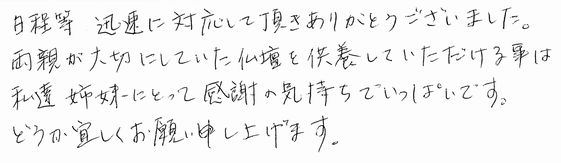 日程等 迅速に対応して頂きありがとうございました。
両親が大切にしていた仏壇を供養していただける事は
私達 姉妹にとって感謝の気持ちでいっぱいです。
どうか宜しくお願い申し上げます。